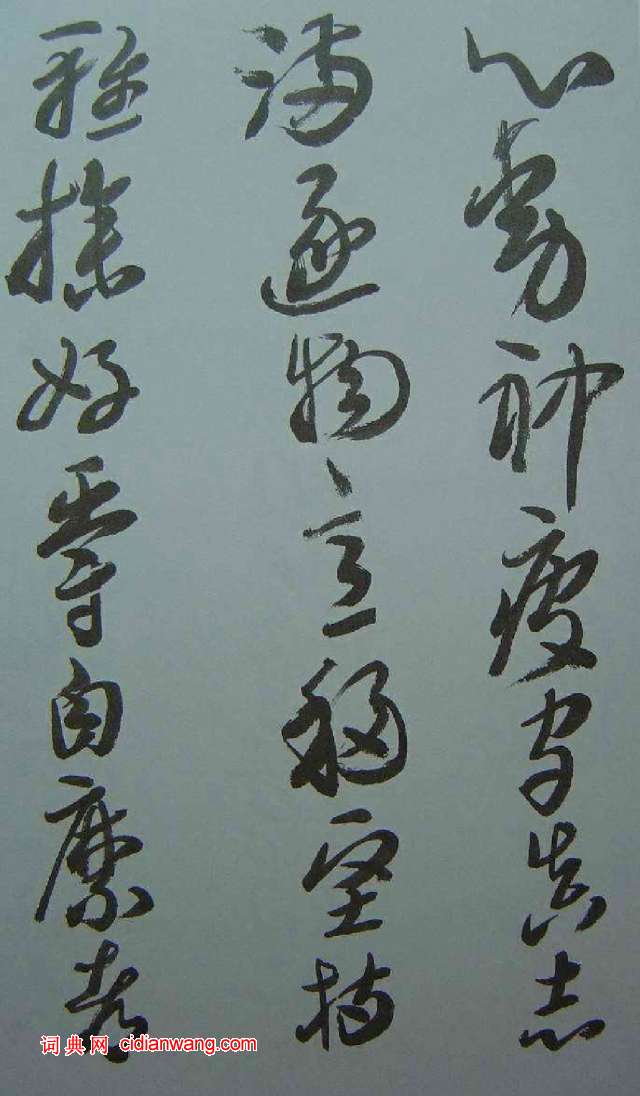 心動神疲守真志
滿逐物意移堅持
雅操好爵自縻都
词典网 cidianwang.com